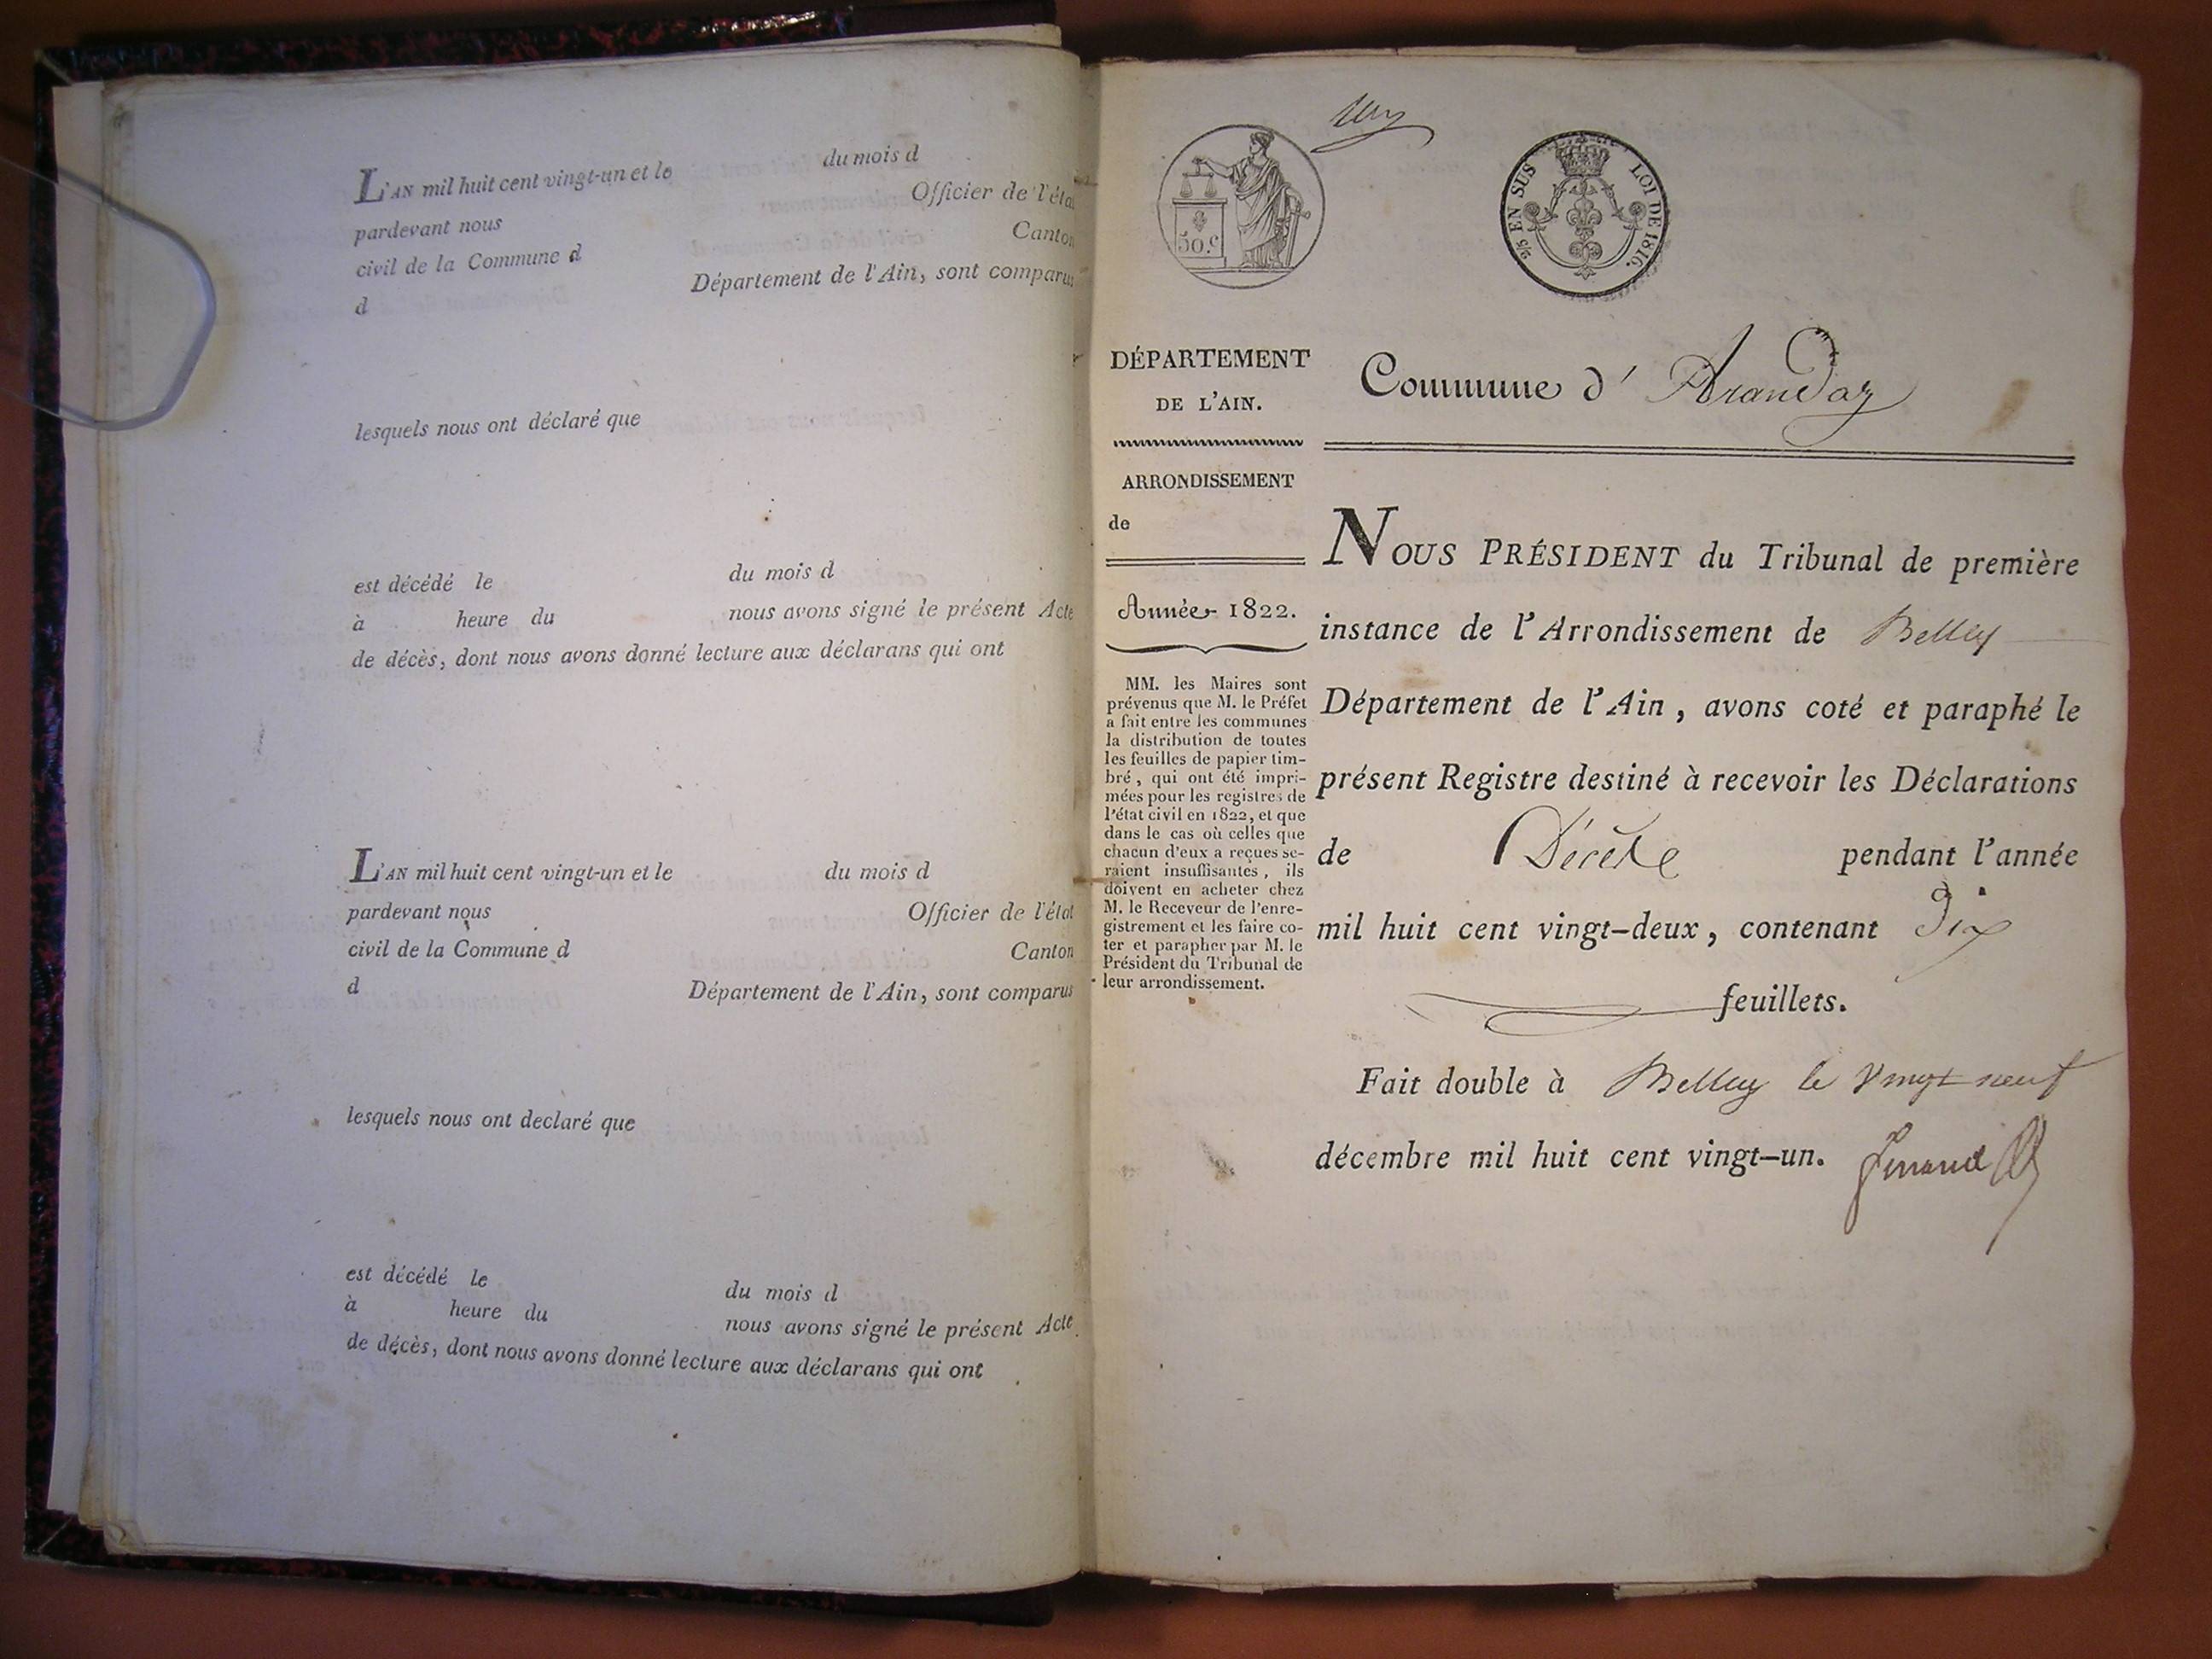 L'AN mil huit cent vingt-un et le du mois d
pardevant nous Officier de l'état
civil de la Commune d Canton
d Département de l'Ain, sont comparus
lesquels nous ont déclaré que
est décédé le du mois d
à heure du nous avons signé le présent Acte
de décès, dont nous avons donné lecture aux déclarans qui ont
L'AN mil huit cent vingt-un et le du mois d
pardevant nous Officier de l'état
civil de la Commune d Canton
d Département de l'Ain, sont comparus
lesquels nous ont declaré que
est décédé le du mois d
à heure du nous avons signé le présent Acte
de décès, dont nous avons donné lecture aux déclarans qui ont
50.c
2/5 EN SUS LOI DE 1816.
DÉPARTEMENT
DE L'AIN.
ARRONDISSEMENT
de
Année 1822.
MM. les Maires sont
prévenus que M. le Préfet
a fait entre les communes
la distribution de toutes
les feuilles de papier tim-
bré, qui ont été impri-
mées pour les registres de
l'état civil en 1822, et que
dans le cas où celles que
chacun d'eux a reçues se-
raient insuffisantes, ils
doivent en acheter chez
M. le Receveur de l'enre-
gistrement et les faire co-
ter et parapher par M. le
Président du Tribunal de
leur arrondissement.
Commune d' Arandaz
NOUS PRÉSIDENT du Tribunal de première
instance de l'Arrondissement de Belley
Département de l'Ain, avons coté et paraphé le
présent Registre destiné à recevoir les Déclarations
de Décès pendant l'année
mil huit cent vingt-deux, contenant Dix
feuillets.
Fait double à Belley le vingt neuf
décembre mil huit cent vingt-un.